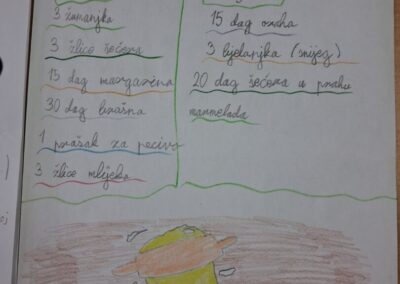 3 žumanjka
3 žlice šećera
15 dag margarina
30 dag brašna
1 prašak za pecivo
3 žlice mlijeka
15 dag oraha
3 bjelanjka (snijeg)
20 dag šećera u prahu
marmelada